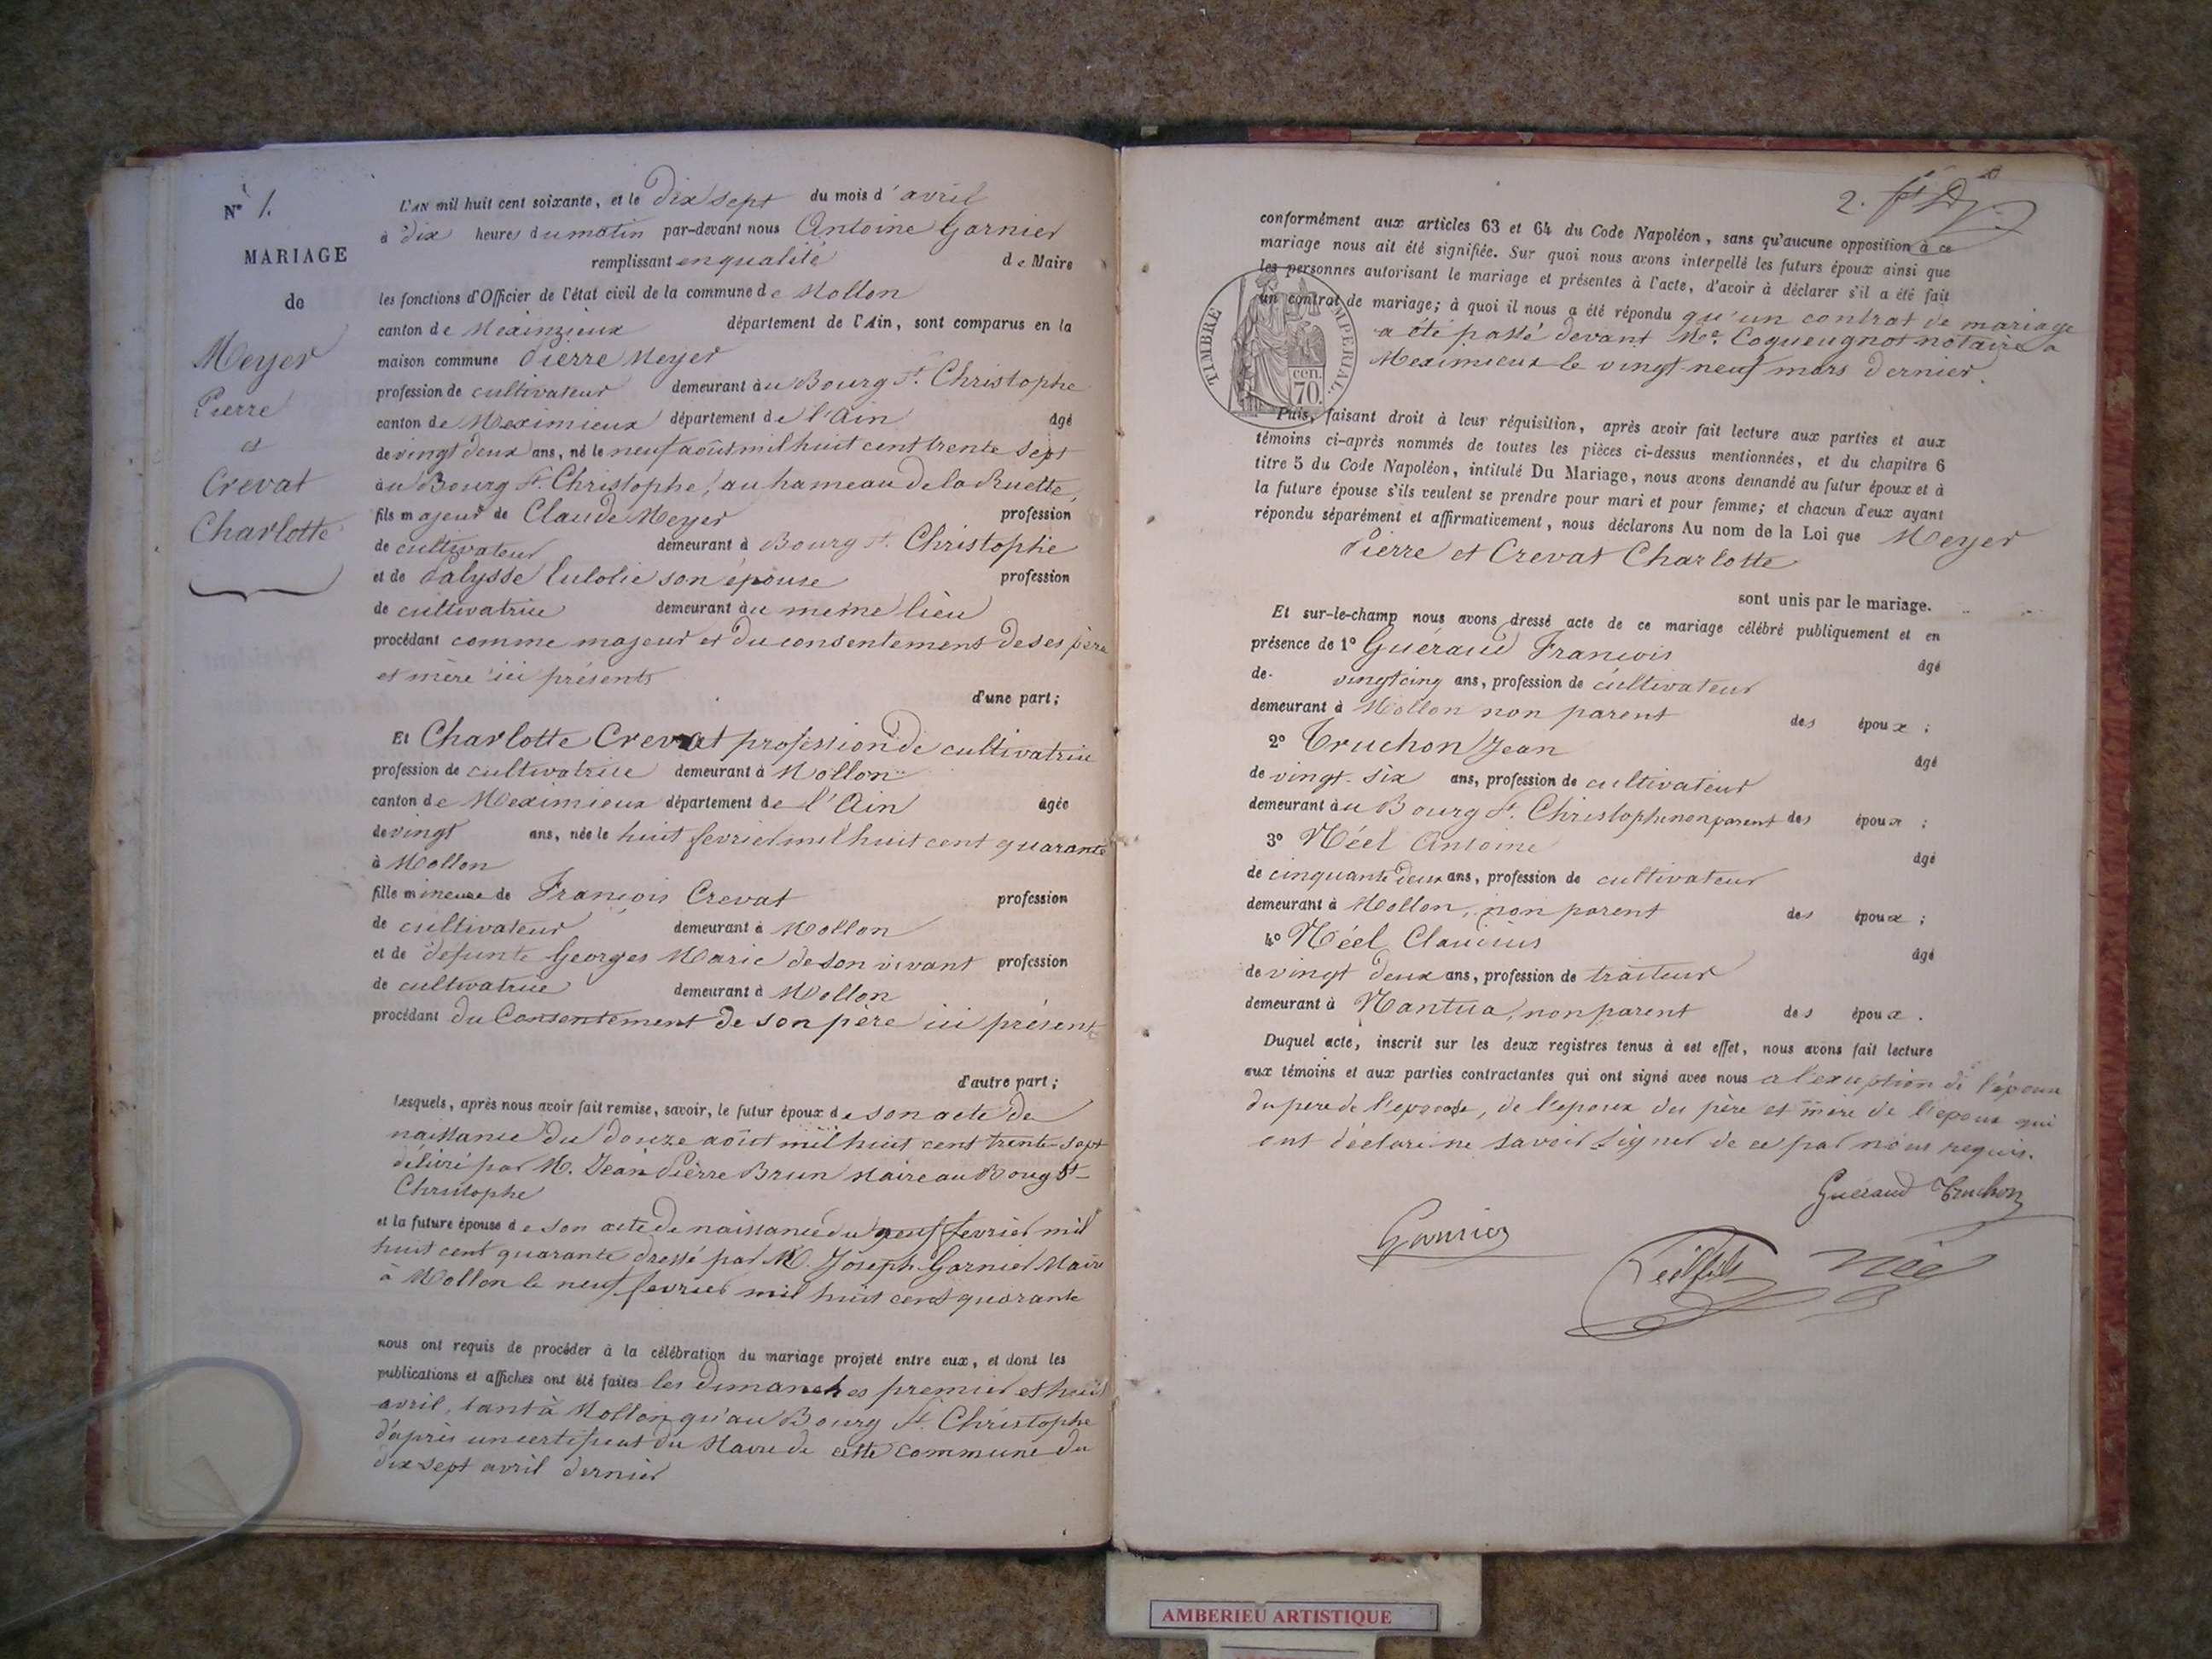 N° 1.
MARIAGE
de
Meyer
Pierre
et
Crevat
Charlotte
L'AN mil huit cent soixante, et le Dix sept du mois d'avril
à dix heures du matin par-devant nous Antoine Garnier
remplissant en qualité de Maire
les fonctions d'Officier de l'état civil de la commune de Mollon
canton de Meximieux département de l'Ain, sont comparus en la
maison commune Pierre Meyer
profession de cultivateur demeurant au Bourg St. Christophe
canton de Meximieux département de l'Ain âgé
de vingt deux ans, né le neuf août mil huit cent trente sept
au Bourg St. Christophe, au hameau de la Ruette,
fils majeur de Claude Meyer profession
de cultivateur demeurant à Bourg St. Christophe
et de son épouse profession
de cultivatrice demeurant au meme lieu
procédant comme majeur et du consentement de ses père
et mère ici présents
d'une part;
Et Charlotte Crevat profession de cultivatrice
profession de cultivatrice demeurant à Mollon
canton de Meximieux département de l'Ain âgée
de vingt ans, née le huit fevrier mil huit cent quarante
à Mollon
fille mineure de François Crevat profession
de cultivateur demeurant à Mollon
et de defunte Georges Marie de son vivant profession
de cultivatrice demeurant à Mollon
procédant du Consentement de son père ici présent
d'autre part;
Lesquels, après nous avoir fait remise, savoir, le futur époux de son acte de
naissance du douze août mil huit cent trente-sept
délivré par M. Jean Pierre Brun Maire au Bourg St-
Christophe
et la future épouse de son acte de naissance du neuf fevrier mil
huit cent quarante dressé par M. Joseph Garnier Maire
à Mollon le neuf fevrier mil huit cent quarante
nous ont requis de procéder à la célébration du mariage projeté entre eux, et dont les
publications et affiches ont été faites les dimanches premier et huit
avril, tant à Mollon qu'au Bourg St. Christophe
d'après un certificat du Maire de cette commune du
dix-sept avril dernier
2.
conformément aux articles 63 et 64 du Code Napoléon, sans qu'aucune opposition à ce
mariage nous ait été signifiée. Sur quoi nous avons interpellé les futurs époux ainsi que
les personnes autorisant le mariage et présentes à l'acte, d'avoir à déclarer s'il a été fait
un contrat de mariage; à quoi il nous a été répondu qu'un contrat de mariage
a été passé devant Me. Coqueugnot notaire à
Meximieux le vingt-neuf mars dernier.
TIMBRE IMPÉRIAL
cen.
70.
Puis, faisant droit à leur réquisition, après avoir fait lecture aux parties et aux
témoins ci-après nommés de toutes les pièces ci-dessus mentionnées, et du chapitre 6
titre 5 du Code Napoléon, intitulé Du Mariage, nous avons demandé au futur époux et à
la future épouse s'ils veulent se prendre pour mari et pour femme; et chacun d'eux ayant
répondu séparément et affirmativement, nous déclarons Au nom de la Loi que Meyer
Pierre et Crevat Charlotte
sont unis par le mariage.
Et sur-le-champ nous avons dressé acte de ce mariage célébré publiquement et en
présence de 1° Guéraud François âgé
de vingt cinq ans, profession de cultivateur
demeurant à Mollon non parent des époux;
2° Truchon Jean âgé
de vingt-six ans, profession de cultivateur
demeurant au Bourg St. Christophe non parent des époux;
3° Néel Antoine âgé
de cinquante deux ans, profession de cultivateur
demeurant à Mollon, non parent des époux;
4° Néel Claudius âgé
de vingt deux ans, profession de traiteur
demeurant à Nantua, non parent des époux.
Duquel acte, inscrit sur les deux registres tenus à cet effet, nous avons fait lecture
aux témoins et aux parties contractantes qui ont signé avec nous à l'exception de l'épouse
du pere de l'epouse, de l'epoux du père et mère de l'epoux qui
ont déclaré ne savoir signer de ce par nous requis.
Guéraud Truchon
Garnier
Néel
AMBERIEU ARTISTIQUE